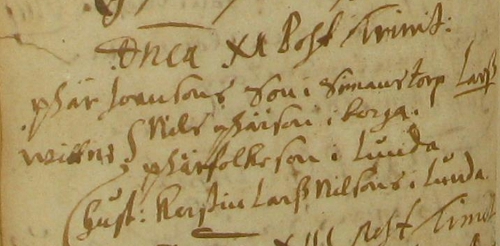 Dnca XX Post Trinit:
phär Joensons Son i Simanstorp Larß
wittns Nels phärson i borga.
phärfolkeson i Lunda
hust: Kerstin Larß Nilsons i Lunda
Post Trinit